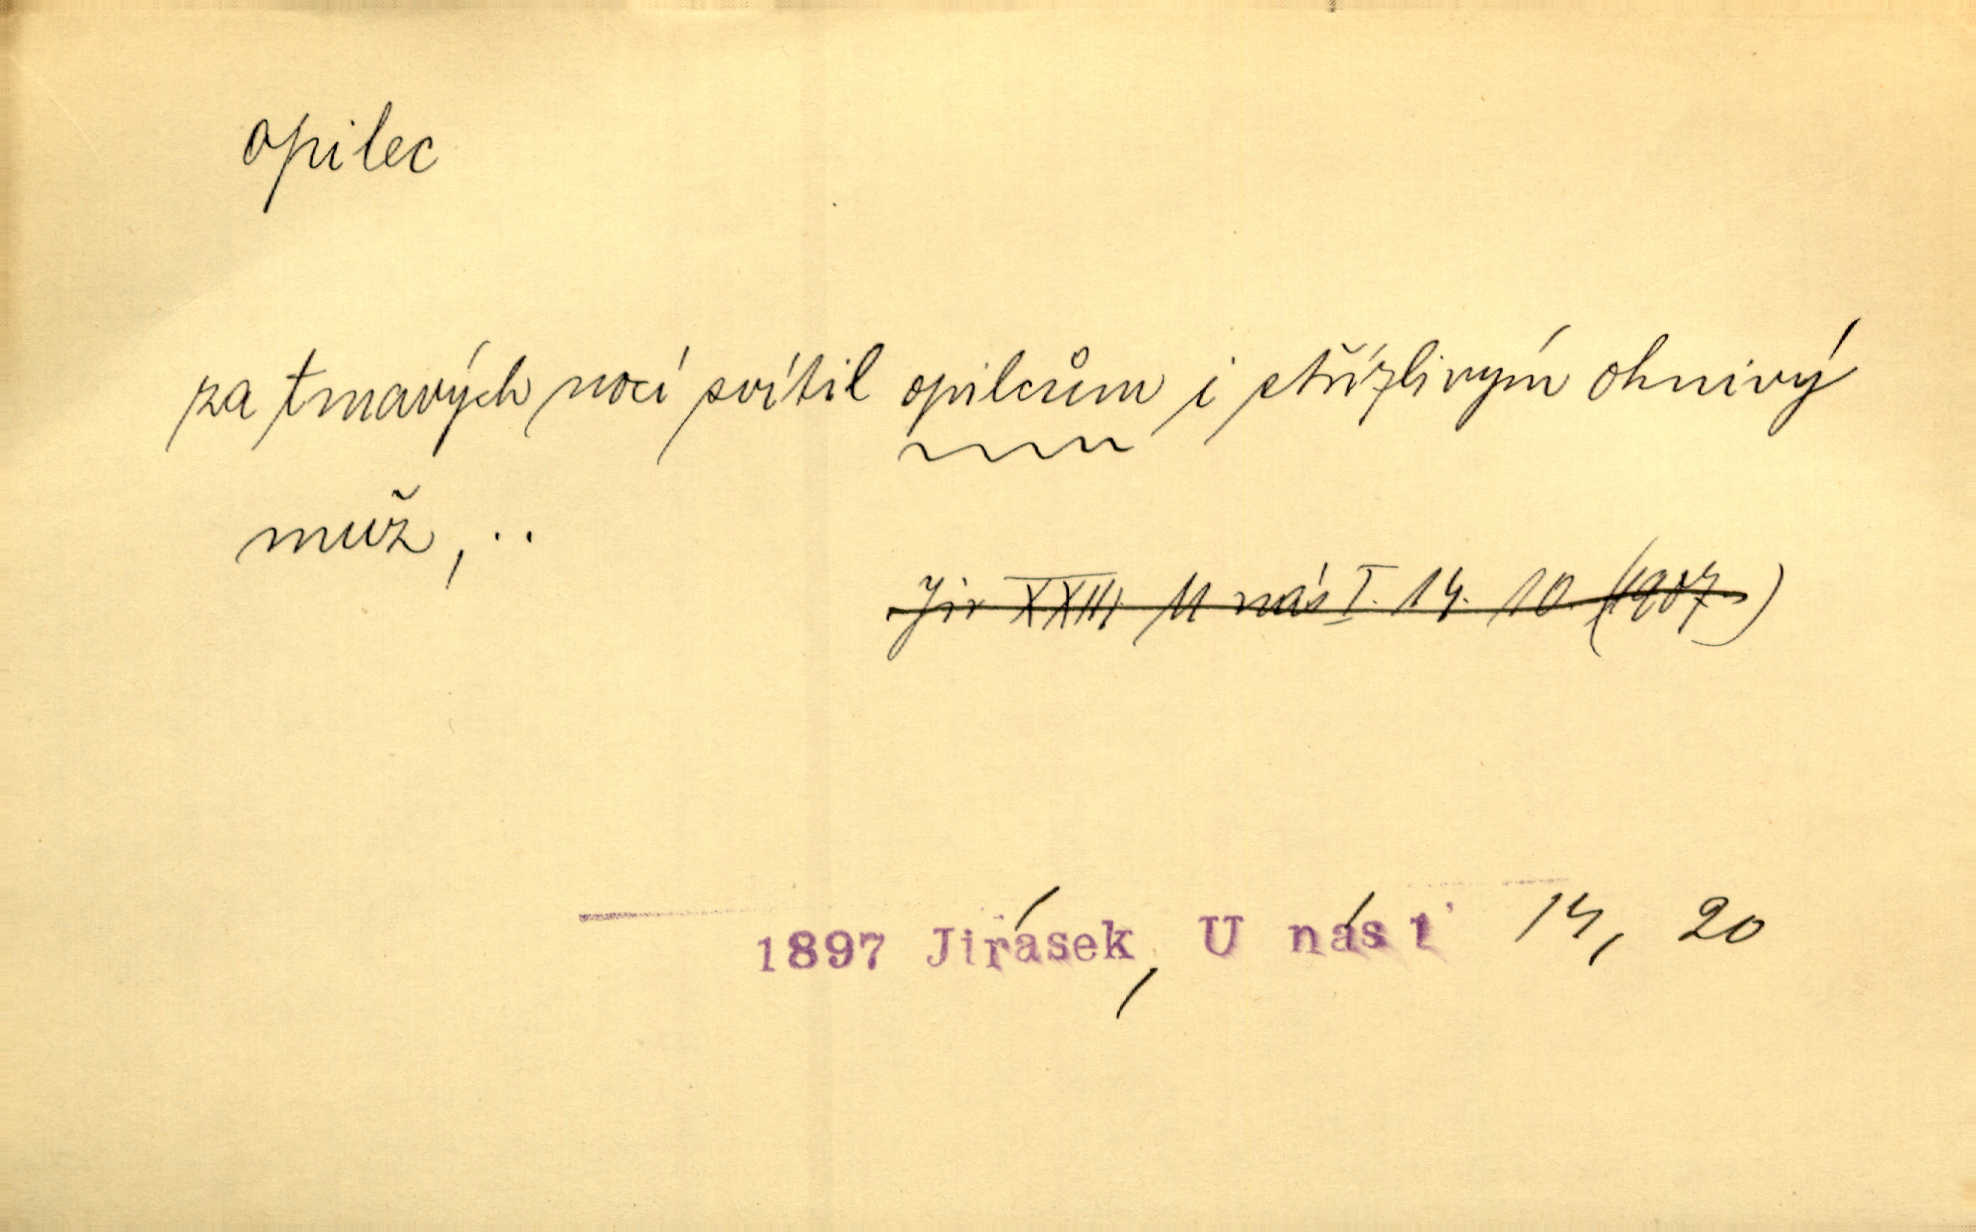 opilec
za tmavých nocí svítil opilcům i střízlivým ohnivý
muž, ..
Jir XXIII U nás I. 14. 10. (1907.)
1897 Jirásek, U nás 1 14, 20